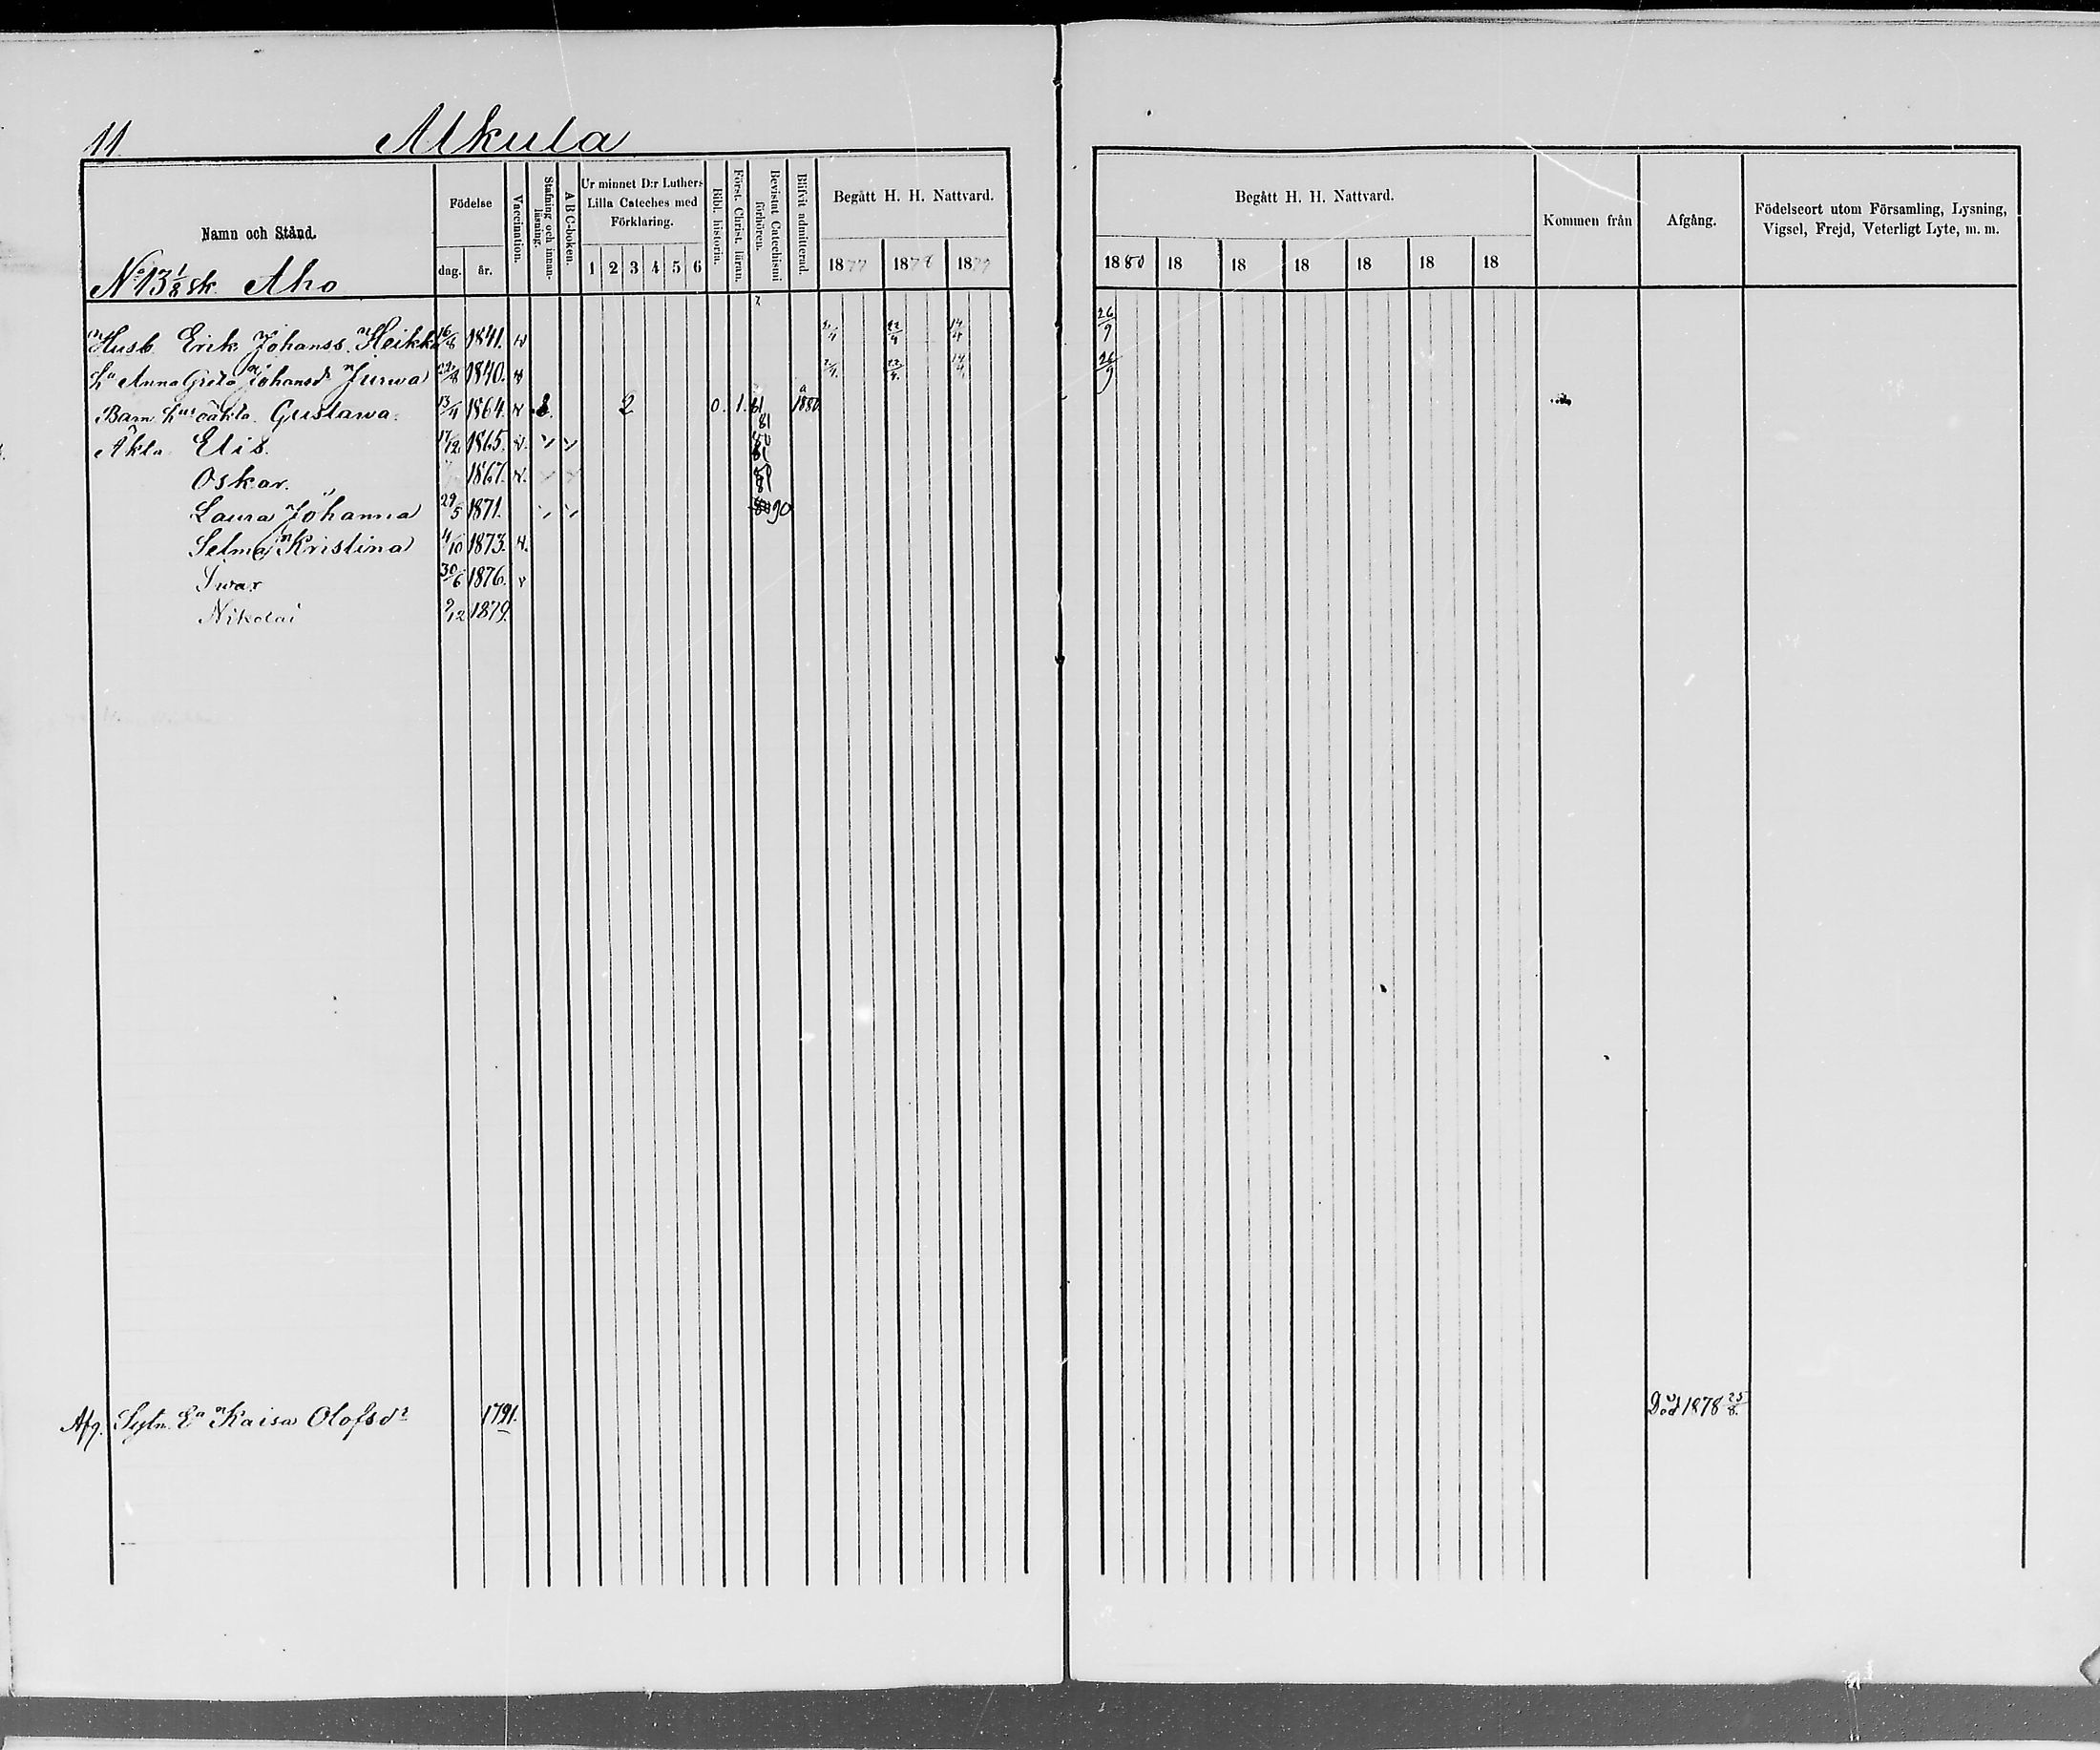 11. Alkula
Namn och Stånd. Födelse dag. år. Vaccination. Stafning och innan-läsning. A B C-boken. Ur minnet D:r Luthers Lilla Cateches med Förklaring. 1 2 3 4 5 6 Bibl. historia. Först. Christ. läran. Bevistat Catechismi förhören. Blifvit admitterad. Begått H. H. Nattvard. 1877 1878 1879
Begått H. H. Nattvard. 1880 18 18 18 18 18 18 Kommen från Afgång. Födelseort utom Församling, Lysning, Vigsel, Frejd, Veterligt Lyte, m. m.
No 13 1/8 sk. Aho
Husb. Erik Johanss. Heikka 16/4 1841. v 22/4 14/4 26/9
hu Anna Greta Johansdr Jurwa 22/8 1840. v 2/4. 22/4. 14/4. 26/9
Barn hus oäkta Gustawa. 13/4 1864. v 2 0. 1. 81 81 a 1880.
Äkta Elis. 17/12 1865. v. 80 81
Oskar. 1867. v. 81
Laura Johanna 29/5 1871. 90
Selma Kristina 4/10 1873. v.
Iwar 30/6 1876. v
Nikolai 9/12 1879.
Afg. Sytn. Ea Kaisa Olofsdr 1791. Död 1878 25/8.